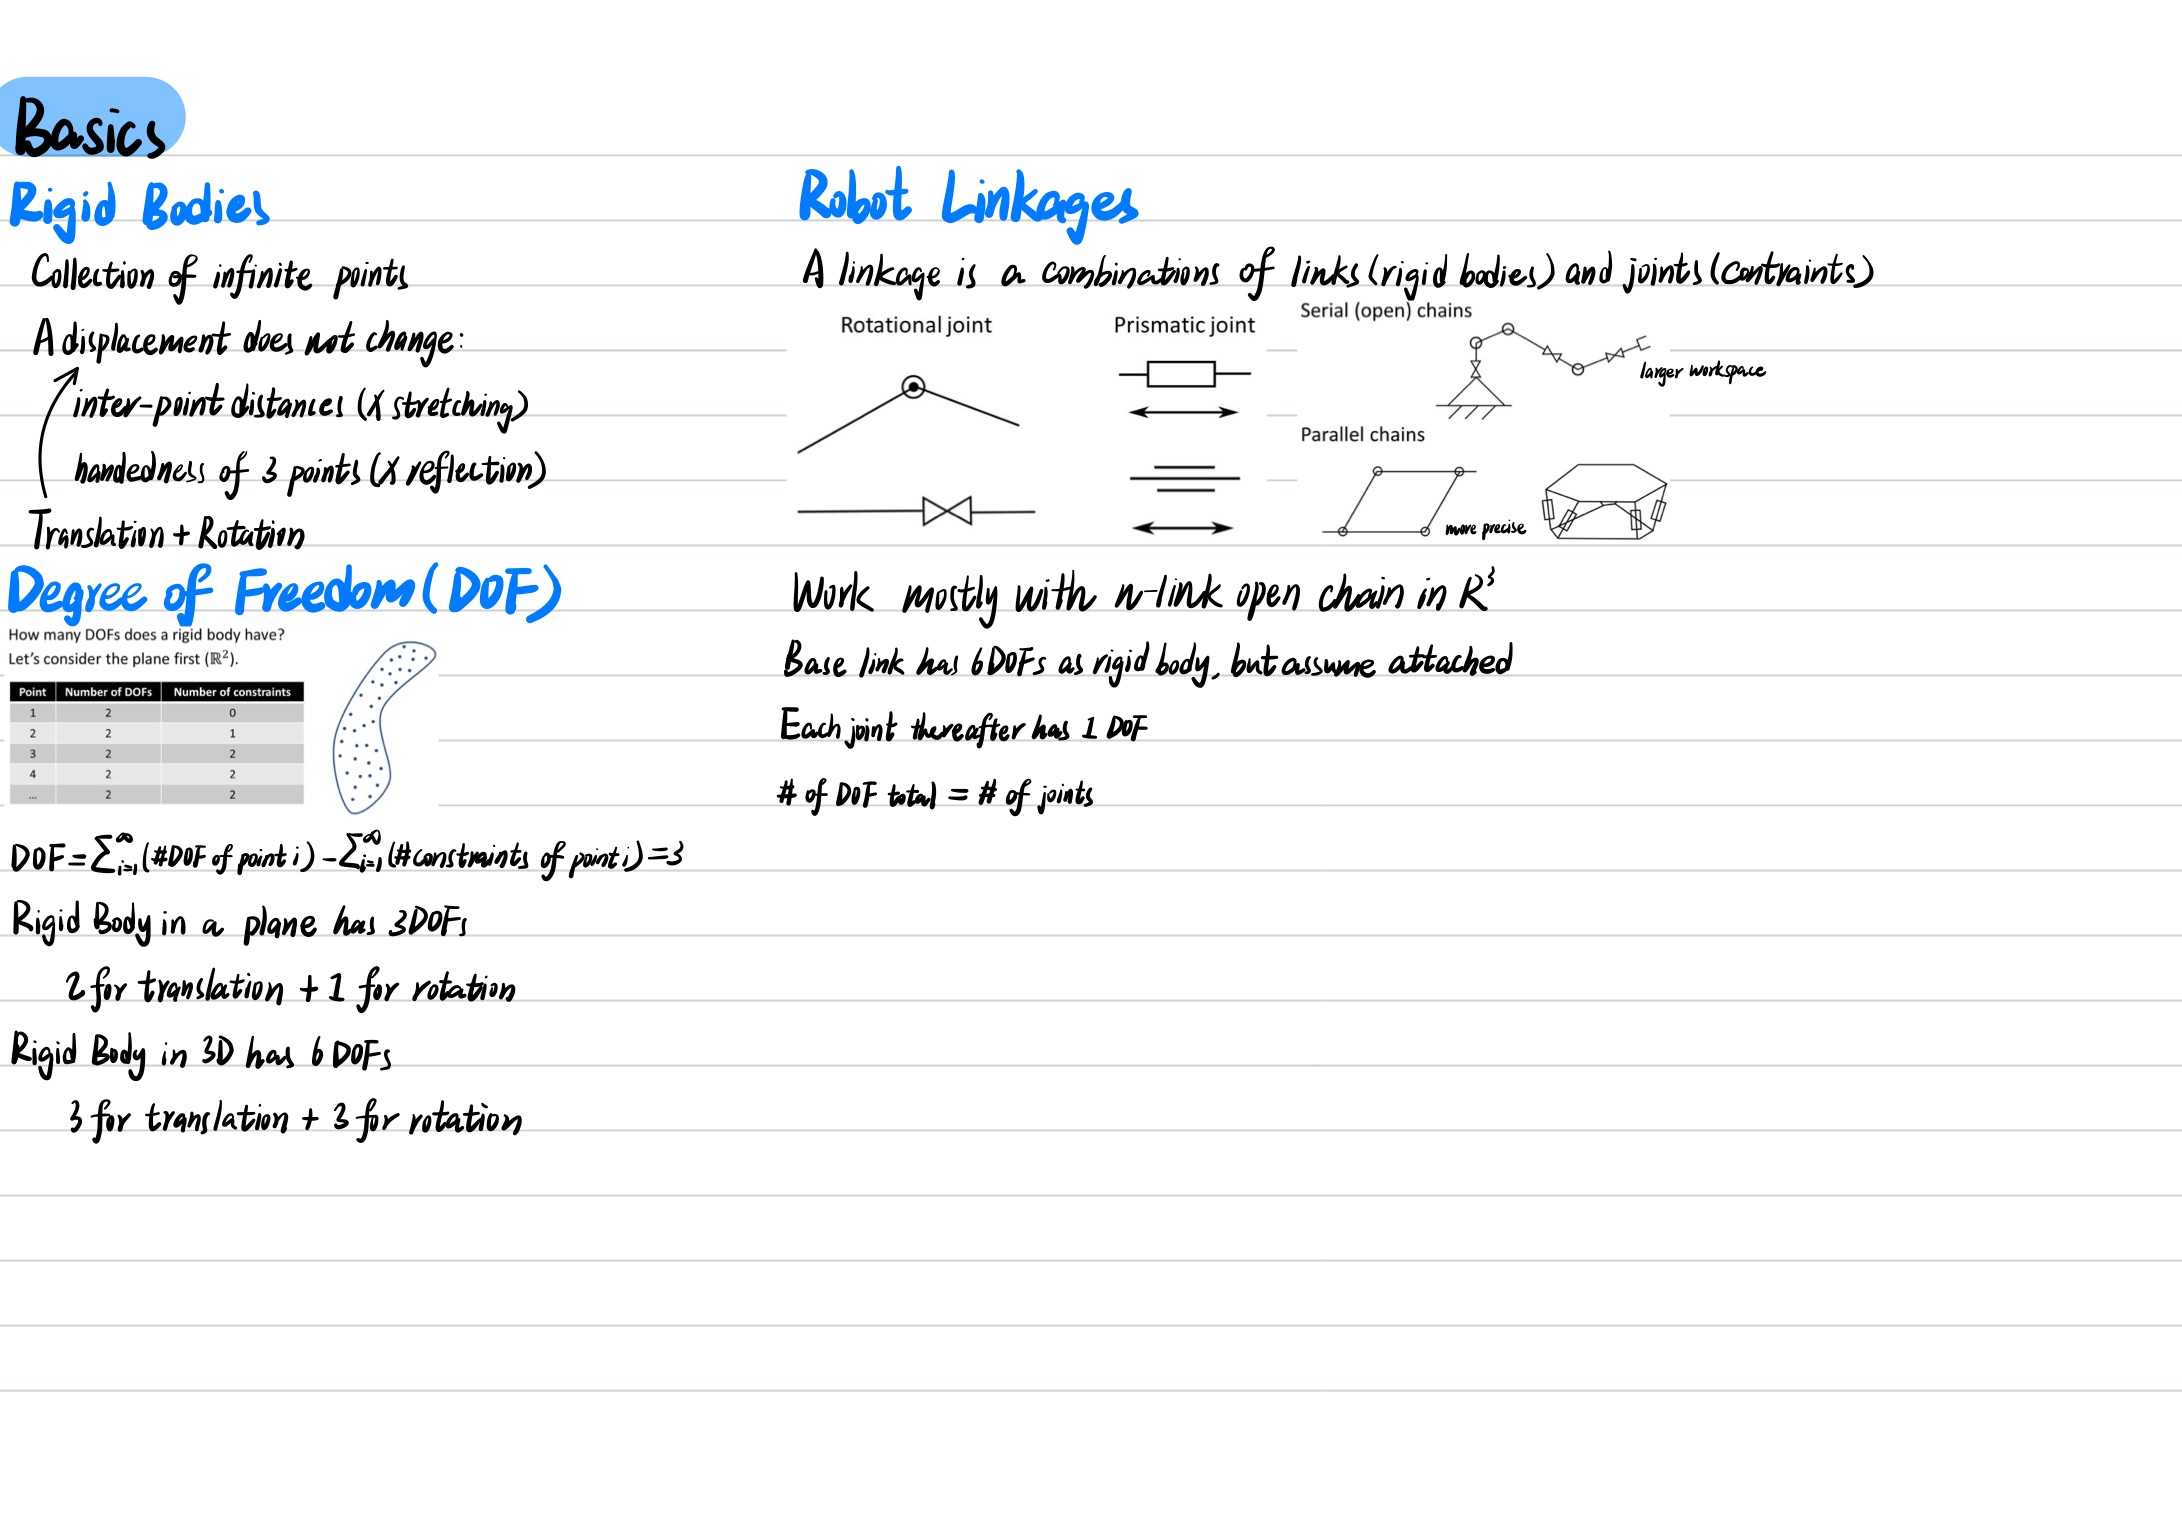 Basics
Rigid Bodies
Collection of infinite points
A displacement does not change:
inter-point distances (X stretching)
handedness of 3 points (X reflection)
Translation + Rotation
Degree of Freedom (DOF)
How many DOFs does a rigid body have?
Let's consider the plane first (ℝ²).
Point Number of DOFs Number of constraints
1 2 0
2 2 1
3 2 2
4 2 2
... 2 2
DOF = ∑_{i=1}^∞ (#DOF of point i) - ∑_{i=1}^∞ (#constraints of point i) = 3
Rigid Body in a plane has 3DOFs
2 for translation + 1 for rotation
Rigid Body in 3D has 6 DOFs
3 for translation + 3 for rotation
Robot Linkages
A linkage is a combinations of links (rigid bodies) and joints (contraints)
Rotational joint
Prismatic joint
Serial (open) chains
larger workspace
Parallel chains
more precise
Work mostly with n-link open chain in R³
Base link has 6DOFs as rigid body, but assume attached
Each joint thereafter has 1 DOF
# of DOF total = # of joints